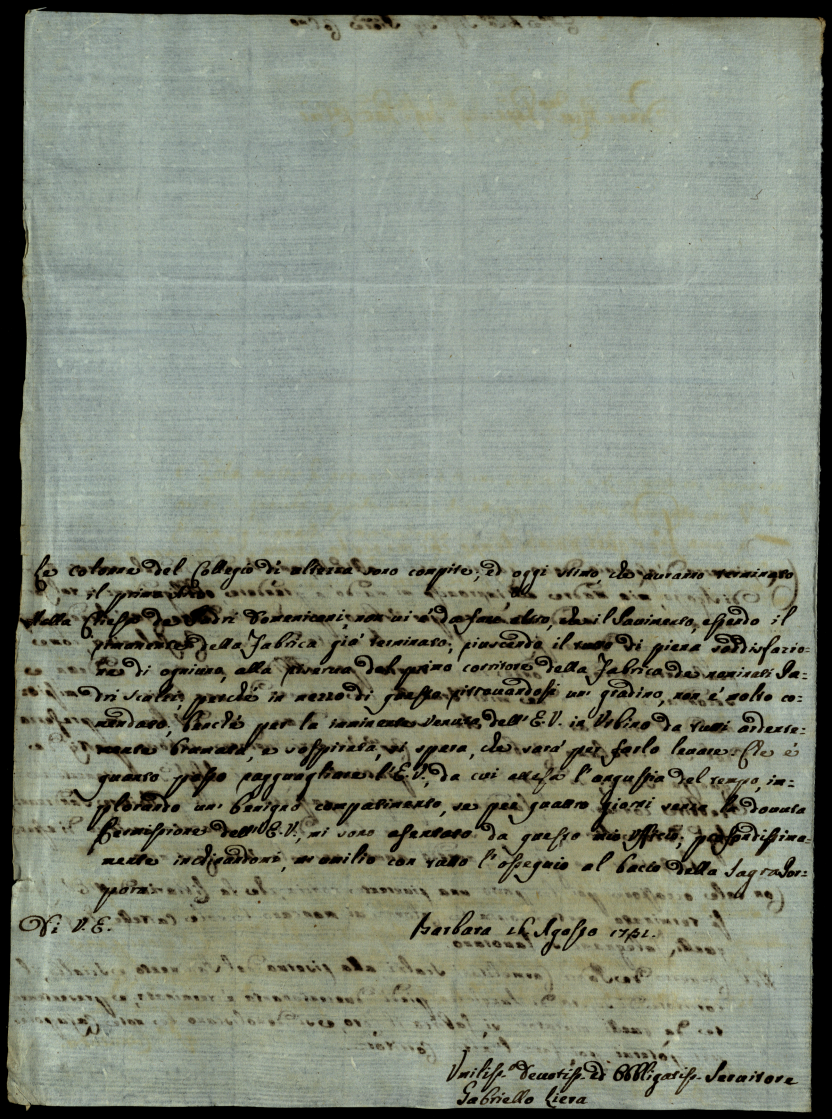 Le colonne del Collegio di ulteria sono compite, ed oggi stimo, che averano terminato
il primo
Nella Chiesa de Padri Domenicani non vi è da fare altro, che il Pavimento, essendo il
rimanente della Fabrica già terminato, riuscendo il tutto di piena soddisfazio-
ne di ogniuno, alla riserva del primo corritore della Fabrica de nominati Pa-
dri perchè in mezzo di questo ritrovandosi un gradino, non è molto co-
mendato, benchè per la imminente venuta dell'E.V. in Urbino da tutti ardente-
mente bramata, e sospirata, si spera, che sarà per farlo levare. Che è
quanto posso ragguagliare l'E.V., da cui attesa l'angustia del tempo, im-
plorando un benigno compatimento, se per quattro giorni senza la dovuta
Permissione dell'E.V., mi sono asentato da questo mio Offizio; profondissima-
mente inchinandomi, m'umilio con tutto l'ossequio al bacio della Sagra Por-
pora.
Di V. E. Barbara 16 Agosto 1741.
Umiliss.º Devotiss. ed Obbligatiss. Servitore
Gabriello Liera